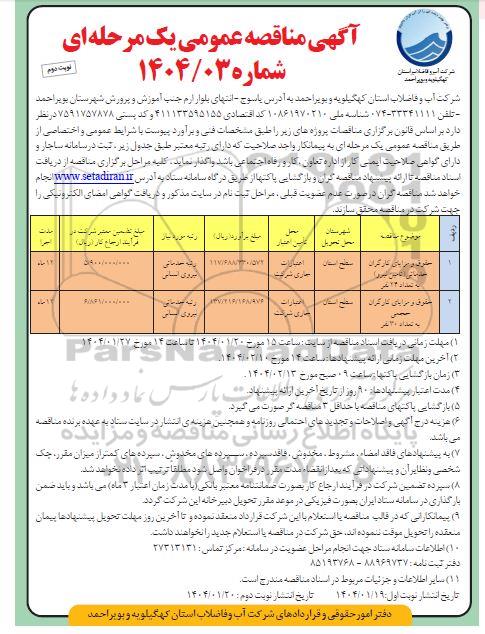 آگهی مناقصه عمومی یک مرحله ای
شماره ۱۴۰۴/۰۳
نوبت دوم
شرکت آب و فاضلاب استان
کهگیلویه و بویراحمد
شرکت آب و فاضلاب استان کهگیلویه و بویراحمد به آدرس یاسوج - انتهای بلوار ارم جنب آموزش و پرورش شهرستان بویراحمد
- تلفن ۳۳۳۴۱۱۱۱-۰۷۴ شناسه ملی ۱۰۸۶۱۹۷۰۲۱۰ کد اقتصادی ۴۱۱۱۳۳۵۹۵۱۵۵ و کد پستی ۷۵۹۱۷۵۷۸۷۸ در نظر
دارد بر اساس قانون برگزاری مناقصات پروژه های زیر را طبق مشخصات فنی و برآورد پیوست با شرایط عمومی و اختصاصی از
طریق مناقصه عمومی یک مرحله ای به پیمانکار واجد صلاحیت که دارای رتبه معتبر طبق جدول زیر، ثبت در سامانه ساجار و
دارای گواهی صلاحیت ایمنی کار از اداره تعاون، کار و رفاه اجتماعی باشد واگذار نماید. کلیه مراحل برگزاری مناقصه از دریافت
اسناد مناقصه تا ارائه پیشنهاد مناقصه گران و بازگشایی پاکتها از طریق درگاه سامانه ستاد به آدرس www.setadiran.ir انجام
خواهد شد مناقصه گران در صورت عدم عضویت قبلی، مراحل ثبت نام در سایت مذکور و دریافت گواهی امضای الکترونیکی را
جهت شرکت در مناقصه محقق سازند.
ردیف موضوع مناقصه شهرستان محل تحویل محل تامین اعتبار مبلغ برآورد (ریال) رتبه مورد نیاز مبلغ تضمین معتبر شرکت در فرآیند ارجاع کار (ریال) مدت اجرا
۱ حقوق و مزایای کارگران خدماتی (تامین نیرو) به تعداد ۲۴ نفر سطح استان اعتبارات جاری شرکت ۱۱۷/۶۸۸/۳۳۰/۵۷۲ رتبه خدماتی نیروی انسانی ۵/۹۰۰/۰۰۰/۰۰۰ ۱۲ ماه
۲ حقوق و مزایای کارگران حجمی به تعداد ۳۰ نفر سطح استان اعتبارات جاری شرکت ۱۳۷/۲۱۶/۱۶۸/۹۷۶ رتبه خدماتی نیروی انسانی ۶/۸۶۱/۰۰۰/۰۰۰ ۱۲ ماه
۱) مهلت زمانی دریافت اسناد مناقصه از سایت: ساعت ۱۵ مورخ ۱۴۰۴/۰۱/۲۰ تا ساعت ۱۴ مورخ ۱۴۰۴/۰۱/۲۷
۲) آخرین مهلت زمانی ارائه پیشنهادها: ساعت ۱۴ مورخ ۱۴۰۴/۰۲/۱۰
۳) زمان بازگشایی پاکتها: ساعت ۰۹ صبح مورخ ۱۴۰۴/۰۲/۱۳
۴) مدت اعتبار پیشنهادها: ۹۰ روز از تاریخ آخرین ارائه پیشنهاد.
۵) بازگشایی پاکتهای مناقصه با حداقل ۳ مناقصه گر صورت می گیرد.
۶) هزینه درج آگهی و اصلاحات و تجدید های احتمالی روزنامه و همچنین هزینه ی انتشار در سایت ستاد به عهده برنده مناقصه
می باشد.
۷) به پیشنهادهای فاقد امضاء، مشروط، مخدوش، فاقد سپرده، سپرده های مخدوش، سپرده های کمتر از میزان مقرر، چک
شخصی و نظایر آن و پیشنهاداتی که بعد از انقضاء مدت مقرر در فراخوان واصل شود مطلقا ترتیب اثر داده نخواهد شد.
۸) سپرده تضمین شرکت در فرآیند ارجاع کار بصورت ضمانتنامه معتبر بانکی (با مدت زمان اعتبار ۳ ماه) می باشد و باید ضمن
بارگذاری در سامانه ستاد ایران بصورت فیزیکی در موعد مقرر تحویل دبیرخانه این شرکت گردد.
۹) پیمانکارانی که در قالب مناقصه یا استعلام با این شرکت قرارداد منعقد نموده و تا آخرین روز مهلت تحویل پیشنهادها پیمان
منعقده را تحویل موقت ننموده اند، حق شرکت در مناقصه یا استعلام جدید را نخواهند داشت.
۱۰) اطلاعات سامانه ستاد جهت انجام مراحل عضویت در سامانه: مرکز تماس: ۲۷۳۱۳۱۳۱
دفتر ثبت نامه: ۸۸۹۶۹۷۳۷ - ۸۵۱۹۳۷۶۸
۱۱) سایر اطلاعات و جزئیات مربوط در اسناد مناقصه مندرج است.
تاریخ انتشار نوبت اول: ۱۴۰۴/۰۱/۱۹ تاریخ انتشار نوبت دوم: ۱۴۰۴/۰۱/۲۰
دفتر امور حقوقی و قراردادهای شرکت آب و فاضلاب استان کهگیلویه و بویراحمد